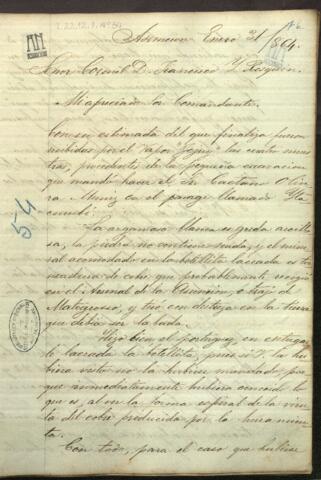 I. 22, 12, 1, Nº 54
Nº 6
AN
ASUNCION
Asuncion Enero 21/864.
Señor Coronel D. Francisco Y. Resquin.
Mi apreciado Sor Comandante.
Con su estimada del que finaliza fueron
recibidos por el vapor "Jejui" las cuatro mues
tras, procedentes de la pequeña escavacion
que mandó hacer el Sr. Caetano Olivei
ra Muniz en el parage llamado
La argamasa blanca es greda arcillo
sa, la piedra no contiene nada, y el mine
ral acomodado en la botellita lacrada es li
madura de cobre, que probablemente recogió
en el Arsenal de la Asuncion, ó trajo de
Matogroso, y tiró con destreza en la tierra
que debia ser labada.
54
Hizo bien el portugues, en entregar
le lacrada la botellita, pues si V. la hu
biera visto no la hubiera mandado, por
que inmediatamente hubiera conocido lo
que es, al ver la forma espiral de la viru
ta del cobre producida por la herramien
ta.
Con todo, para el caso que hubiese